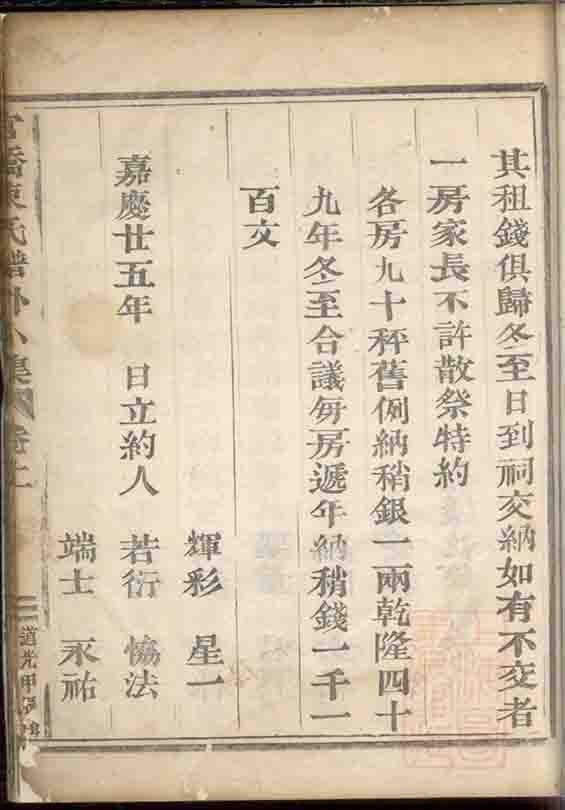 其租錢俱歸冬至日到祠交納如有不交者
一房家長不許散祭特約
各房九十秤舊例納稍銀一兩乾隆四十
九年冬至合議每房遞年納稍錢一千一
百文
輝彩 星一
嘉慶廿五年 日立約人 若衍 恊法
端士 永祐
氏譜外小集 卷十
道光甲